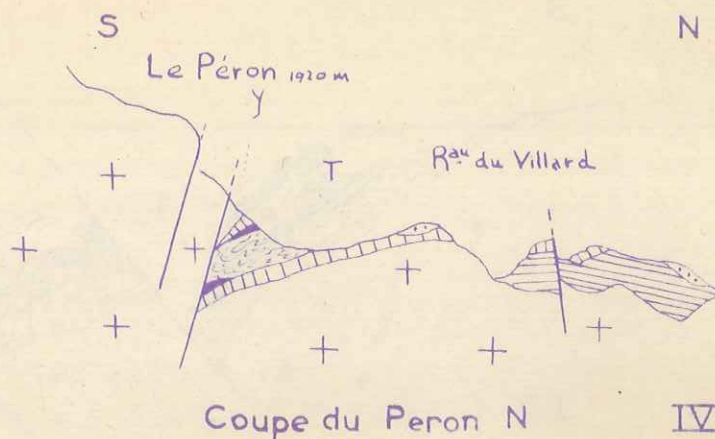 S N
Le Péron 1920 m
y
T Rau du Villard
Coupe du Peron N IV